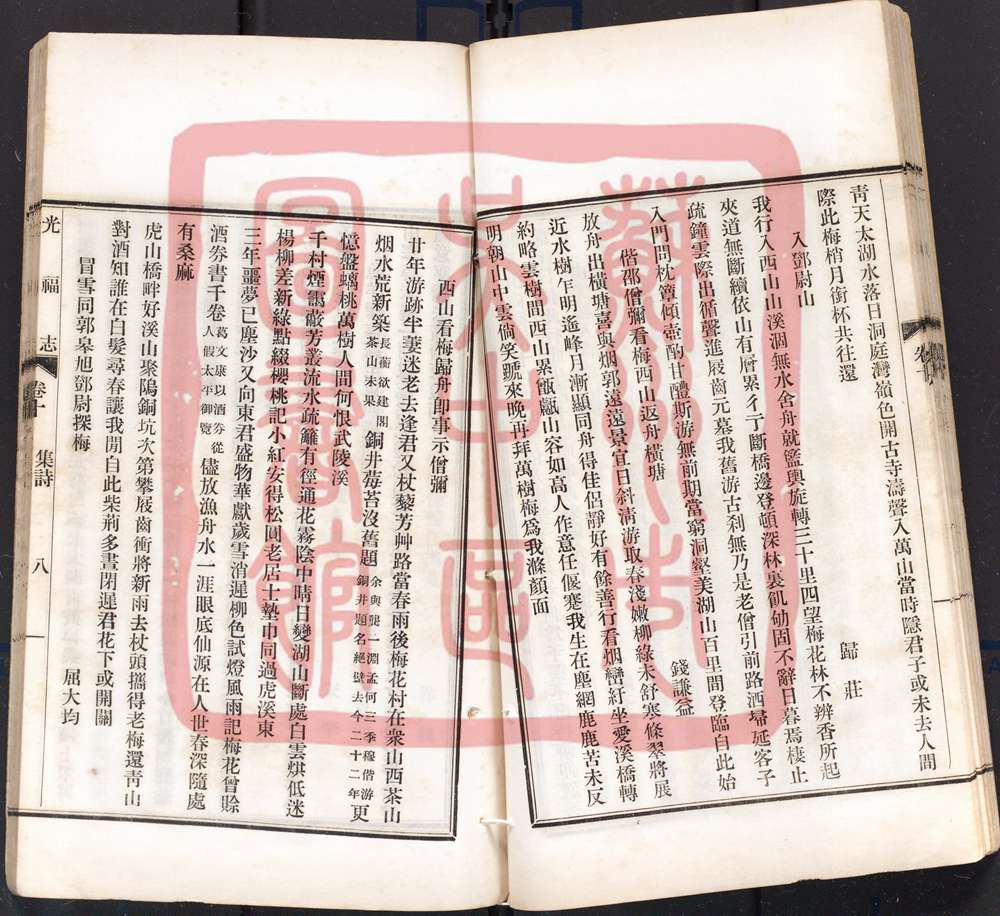 青天太湖水落日洞庭灣嶺色開古寺濤聲入萬山當時隱君子或未去人間
際此梅梢月銜杯共往還
入鄧尉山
歸莊
我行入西山山溪涸無水舍舟就籃輿旋轉三十里四望梅花林不辨香所起
夾道無斷續依山有層累彳亍斷橋邊登頓深林裏飢劬固不辭日暮焉棲止
疏鐘雲際出循聲進屐齒元墓我舊游古刹無乃是老僧引前路洒埽延客子
入門問枕簟傾壺酌甘醴斯游無前期當窮洞壑美湖山百里間登臨自此始
偕邵僧彌看梅西山返舟橫塘
錢謙益
放舟出橫塘喜與烟郭遠遠景宜日斜清游取春淺嫩柳綠未舒寒條翠將展
近水樹乍明遙峰月漸顯同舟得佳侶靜好有餘善行看烟巒紆坐愛溪橋轉
約略雲樹間西山累甑甗山容如高人作意任偃蹇我生在塵網鹿鹿苦未反
明朝山中雲倘笑遯來晚再拜萬樹梅爲我滌顏面
西山看梅歸舟卽事示僧彌
廿年游跡半萋迷老去逢君又杖藜芳艸路當春雨後梅花村在衆山西茶山
烟水荒新築長蘅欲建閣茶山未果銅井莓苔沒舊題余與龍一淵孟何三季穆偕游銅井題名絕壁去今二十二年更
憶盤螭桃萬樹人間何恨武陵溪
千村煙靄嚴芳叢流水疏籬有徑通花霧陰中晴日變湖山斷處白雲烘低迷
楊柳差新綠點綴櫻桃記小紅安得松圓老居士墊巾同過虎溪東
三年噩夢已塵沙又向東君盛物華獻歲雪消遲柳色試燈風雨記梅花曾賒
酒券書千卷葛文康以酒券從人假太平御覽儘放漁舟水一涯眼底仙源在人世春深隨處
有桑麻
虎山橋畔好溪山聚隖銅坑次第攀屐齒衝將新雨去杖頭攜得老梅還靑山
對酒知誰在白髮尋春讓我閒自此柴荊多晝閉遲君花下或開關
冒雪同郭皋旭鄧尉探梅
屈大均
光福志
卷十
集詩
八